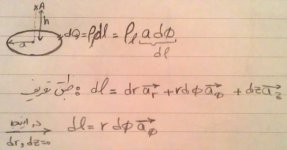 A
h
a
dQ = ρ_l dl = ρ_l a dφ
dl
طبق تعریف : dl = dr a⃗_r + r dφ a⃗_φ + dz a⃗_z
در اینجا
dr, dz = 0
dl = r dφ a⃗_φ